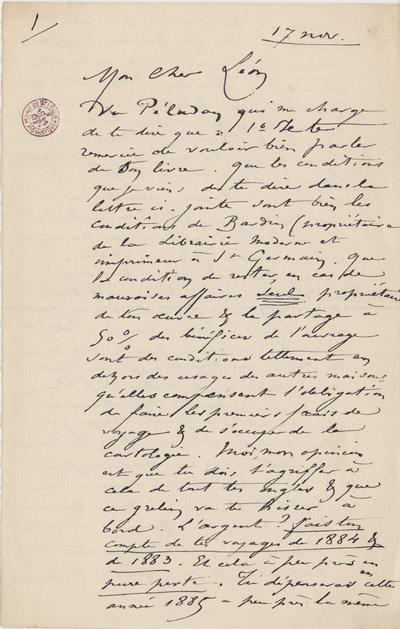 1/
17 nov.
Mon Cher Léon
Vu Péladan qui me charge
de te dire que = 1º Il te
remercie de vouloir bien parler
de son livre. que les conditions
que je viens de te dire dans la
lettre ci-jointe sont bien les
conditions de Bardin (propriétaire
de la Librairie Moderne et
imprimeur à St Germain. que
la condition de rester, en cas de
mauvaises affaires seul propriétaire
de ton œuvre & le partage à
50% des bénéfices de l'ouvrage
sont des conditions tellement en
dehors des usages des autres maisons,
qu'elles compensent l'obligation
de faire les premiers frais de
voyage & de s'occuper de la
cartologie. Moi, mon opinion
est que tu dois t'agriffer à
cela de tout tes ongles & que
ce grelin va te hisser à
bord. L'argent? fais ton
compte de tes voyages de 1884 &
de 1883. Et cela à peu près en
pure perte. Tu dépenserais cette
année 1885 à peu près la même